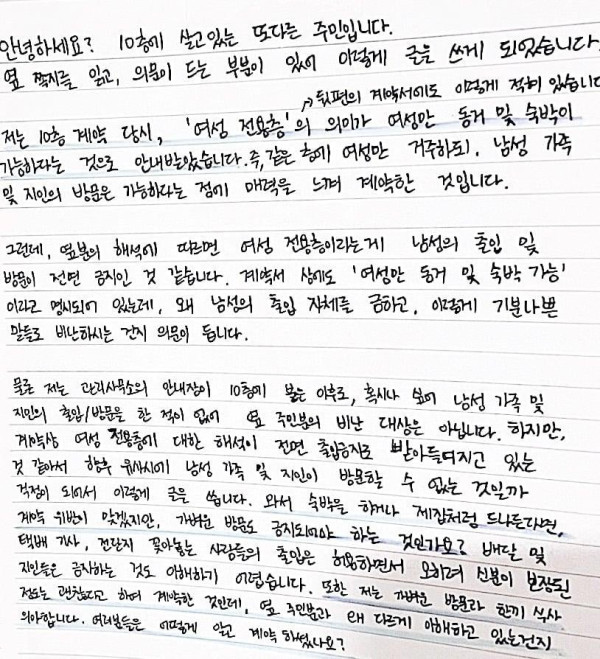 안녕하세요? 10층에 살고있는 또다른 주민입니다.
옆 쪽지를 읽고, 의문이 드는 부분이 있어 이렇게 글을 쓰게 되었습니다.
→ 뒷편의 계약서에도 이렇게 적혀있습니다
저는 10층 계약 당시, '여성 전용층'의 의미가 여성만 동거 및 숙박이
가능하다는 것으로 안내받았습니다. 즉, 같은 층에 여성만 거주하되, 남성 가족
및 지인의 방문은 가능하다는 점에 매력을 느껴 계약한 것입니다.
그런데, 옆분의 해석에 따르면 여성 전용층이라는게 남성의 출입 및
방문이 전면 금지인 것 같습니다. 계약서 상에도 '여성만 동거 및 숙박 가능'
이라고 명시되어 있는데, 왜 남성의 출입 자체를 금하고, 이렇게 기분나쁜
말들로 비난하시는 건지 의문이 듭니다.
물론 저는 관리사무소의 안내장이 10층에 붙은 이후로, 혹시나 싶어 남성 가족 및
지인의 출입/방문을 한 적이 없어 옆 주민분의 비난 대상은 아닙니다. 하지만,
계약상 여성 전용층에 대한 해석이 전면 출입금지로 받아들여지고 있는
것 같아서 향후 유사시에 남성 가족 및 지인이 방문할 수 없는 것일까
걱정이 되어서 이렇게 글을 씁니다. 와서 숙박을 하거나 제집처럼 드나든다면,
계약 위반이 맞겠지만, 가벼운 방문도 금지되어야 하는 것인가요? 배달 및
택배 기사, 전단지 꽂아놓는 사람들의 출입은 허용하면서 오히려 신분이 보장된
지인들은 금지하는 것도 이해하기 어렵습니다. 또한 저는 가벼운 방문과 한끼 식사
정도는 괜찮다고 하여 계약한 것인데, 옆 주민분과 왜 다르게 이해하고 있는건지
의아합니다. 여러분들은 어떻게 알고 계약하셨나요?